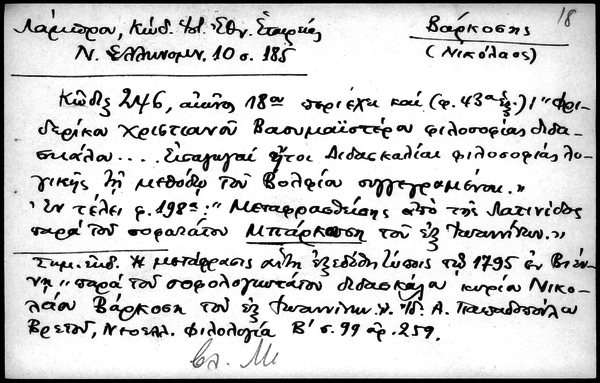 18
Λάμπρου, Κώδ. Ἱστ. Ἐθν. Ἑταιρείας
Βάρκοσης
Ν. Ἑλληνομν. 10 σ. 185
(Νικόλαος)
Κῶδιξ 246, αἰῶνος 18ου περιέχει καί (φ. 43α ἑξ.) "Φρι-
δερίκου Χριστιανοῦ Βαουμαϊστέρου φιλοσοφίας διδα-
σκάλου.... Εἰσαγωγαί ἤτοι Διδασκαλίαι φιλοσοφίας λο-
γικῆς τῇ μεθόδῳ τοῦ Βολφίου συγγεγραμέναι."
Ἐν τέλει φ. 198α: "Μεταφρασθείσης ἀπό τῆς Λατινίδος
παρά τοῦ σοφωτάτου Μπάρκοση τοῦ ἐξ Ἰωαννίνων."
Σημ. ἐκδ. Ἡ μετάφρασις αὕτη ἐξεδόθη τύποις τῷ 1795 ἐν Βιέν-
νῃ "παρά τοῦ σοφολογιωτάτου διδασκάλου κυρίου Νικο-
λάου Βάρκοση τοῦ ἐξ Ἰωαννίνων". Ἰδ. Α. Παπαδοπούλου
Βρετοῦ, Νεοελλ. Φιλολογία Β' σ. 99 ἀρ. 259.
βλ. Μι